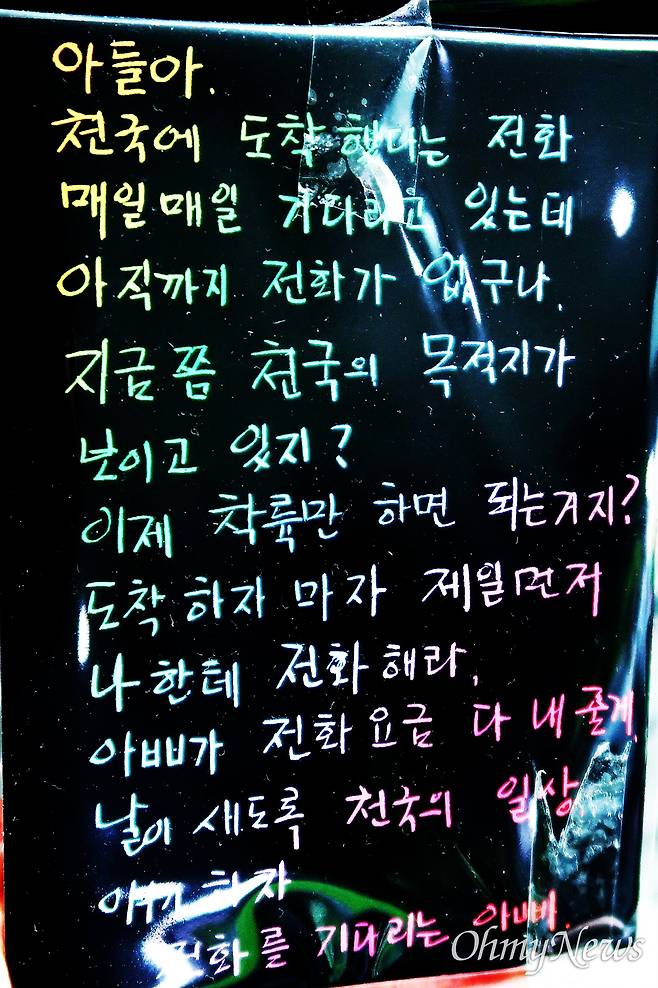 아들아.
천국에 도착했다는 전화
매일매일 기다리고 있는데
아직까지 전화가 없구나.
지금쯤 천국의 목적지가
보이고 있지?
이제 착륙만 하면 되는거지?
도착하자마자 제일먼저
나한테 전화해라.
아빠가 전화요금 다 내줄게.
날이 새도록 천국의 일상
이야기 하자
전화를 기다리는 아빠.
OhmyNews